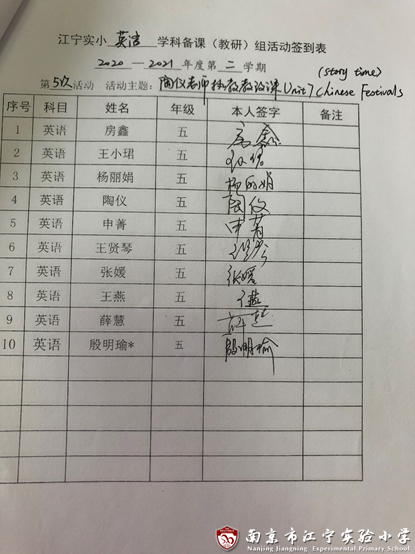 江宁实小 英语 学科备课（教研）组活动签到表
2020 — 2021 年度第 二 学期
(story time)
第 5次 活动 活动主题： 陶仪老师 教研课 Unit 7 Chinese Festivals
序号 科目 姓名 年级 本人签字 备注
1 英语 房鑫 五 房鑫
2 英语 王小珺 五
3 英语 杨丽娟 五 杨丽娟
4 英语 陶仪 五 陶仪
5 英语 申菁 五 申菁
6 英语 王贤琴 五
7 英语 张媛 五 张媛
8 英语 王燕 五
9 英语 薛慧 五
10 英语 殷明瑜* 五 殷明瑜
南京市江宁实验小学
Nanjing Jiangning Experimental Primary School